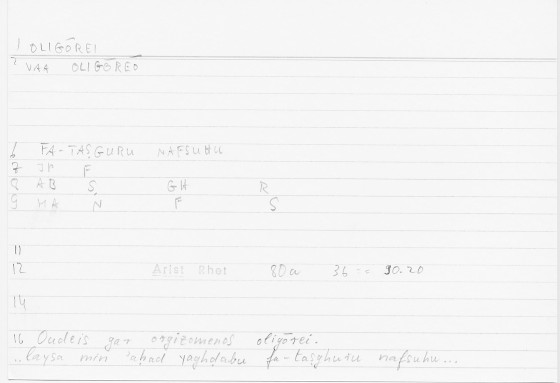 1 OLIGŌREI
2 VAA OLIGŌREŌ
6 FA-TAṢGURU NAFSUHU
7 IM F
8 AB Ṣ GH R
9 MA N F S
11
12 Arist Rhet 80a 36 := 90.20
14
16 Oudeis gar orgizomenos oligōrei.
..laysa min 'aḥad yaghḍabu fa-taṣghuru nafsuhu...